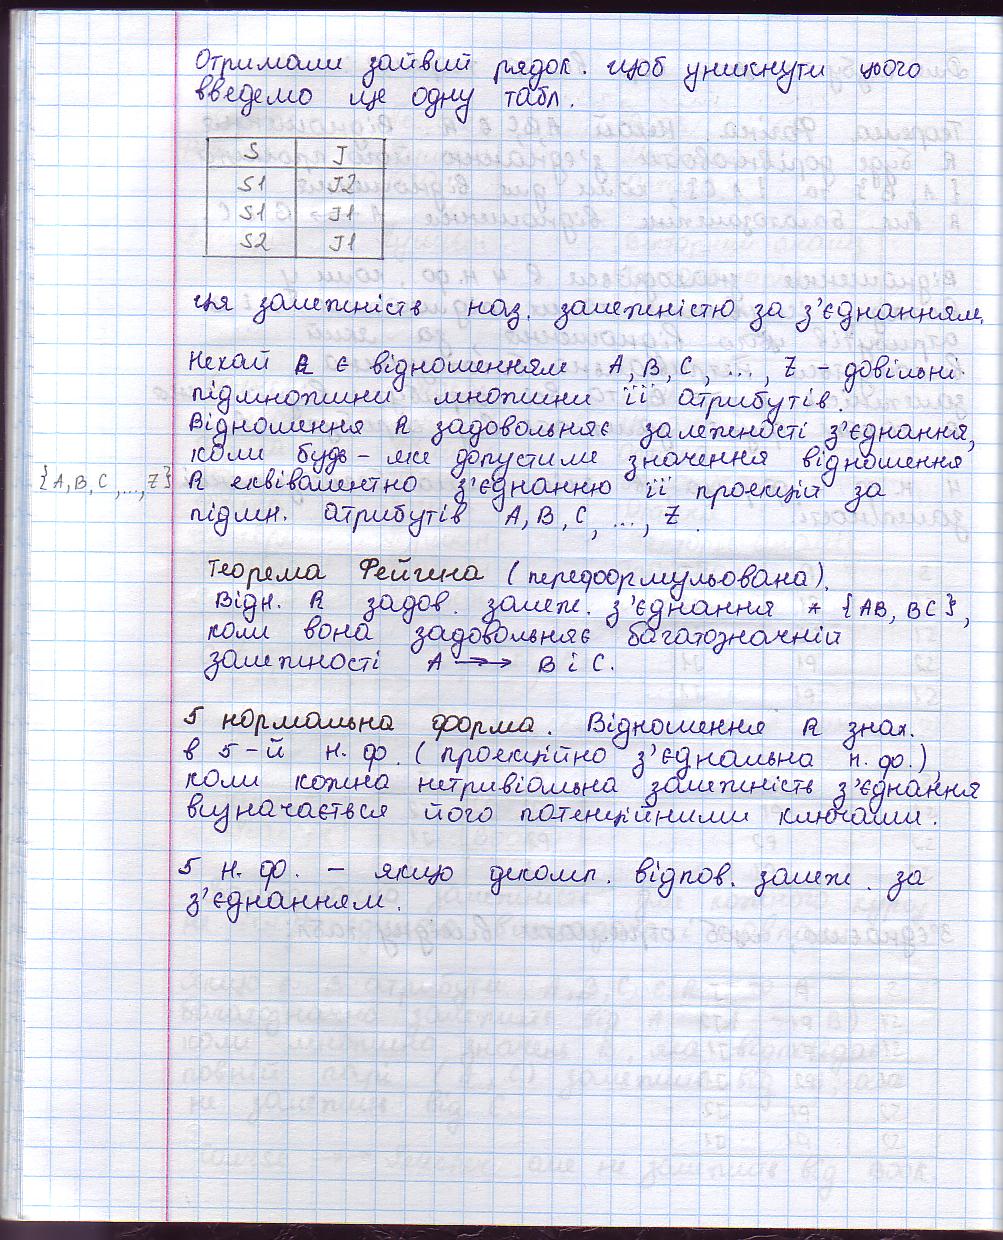 Отримали зайвий рядок. Щоб уникнути цього
введемо ще одну табл.
S J
S1 J2
S1 J1
S2 J1
Ця залежність наз. залежністю за з'єднанням.
Нехай R є відношенням A, B, C, ..., Z - довільні
підмножини множини її атрибутів.
Відношення R задовольняє залежності з'єднання,
коли будь-яке допустиме значення відношення
{A, B, C, ..., Z} R еквівалентно з'єднанню її проекцій за
підмн. атрибутів A, B, C, ..., Z.
Теорема Фейгина (передоормульована).
Відн. R задов. залеж. з'єднання * {AB, BC},
коли вона задовольняє багатозначній
залежності A →→ B і C.
5 нормальна форма. Відношення R знах.
в 5-й н. ф. (проекційно з'єднальна н. ф.)
коли кожна нетривіальна залежність з'єднання
визначається його потенційними ключами.
5 н. ф. - якщо декомп. відпов. залеж. за
з'єднанням.